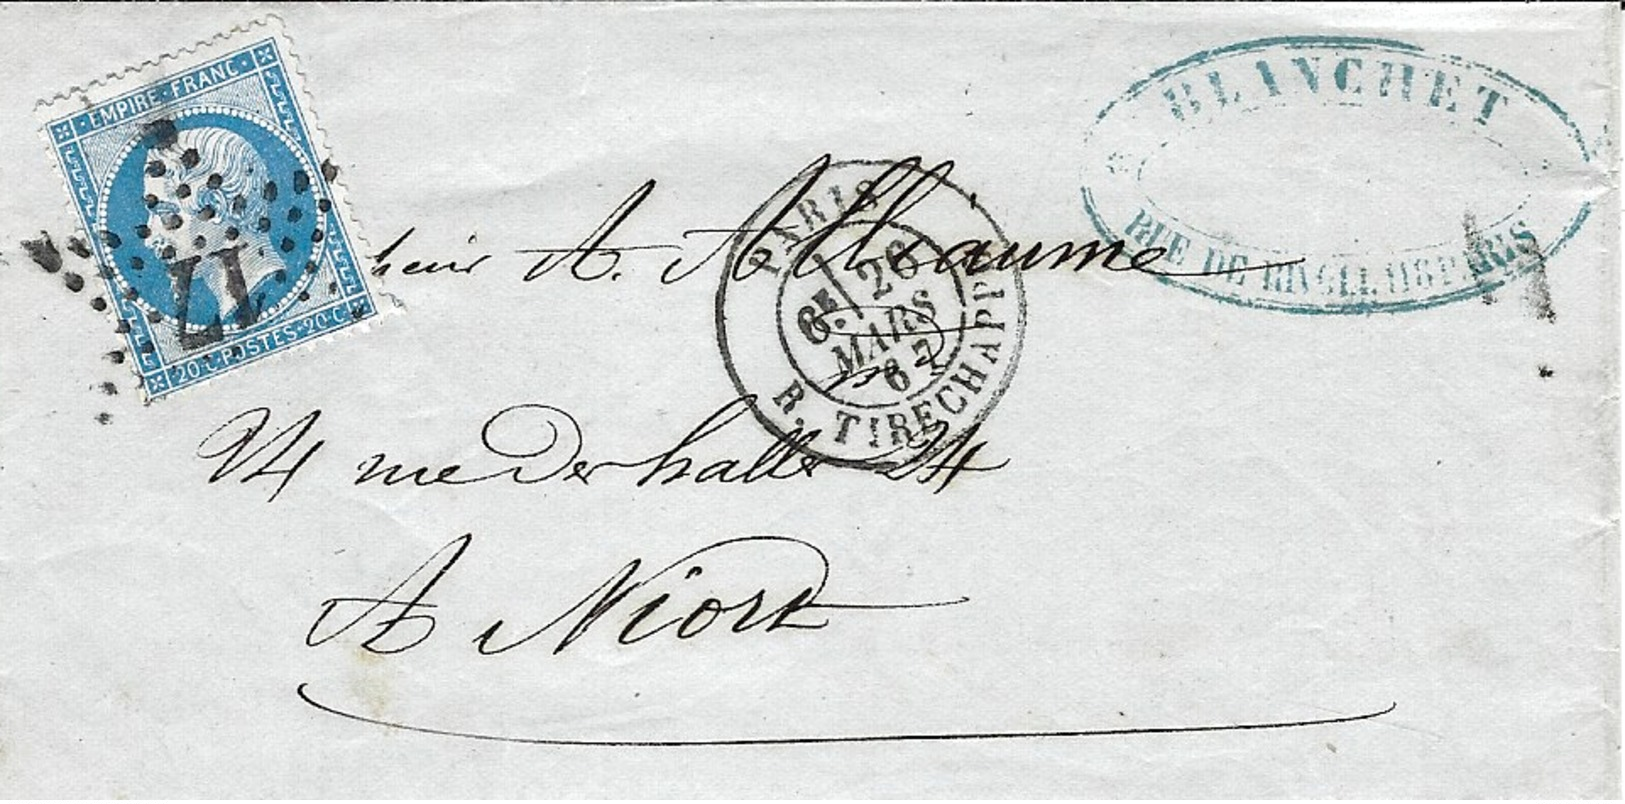 EMPIRE·FRANC·
20·C·POSTES·20·C·
17
BLANCHET
RUE DE RIVOLI PARIS
PARIS
6E
26
MARS
67
R. TIRECHAPP
A. Alleaume
24 rue des halles 24
A Niort